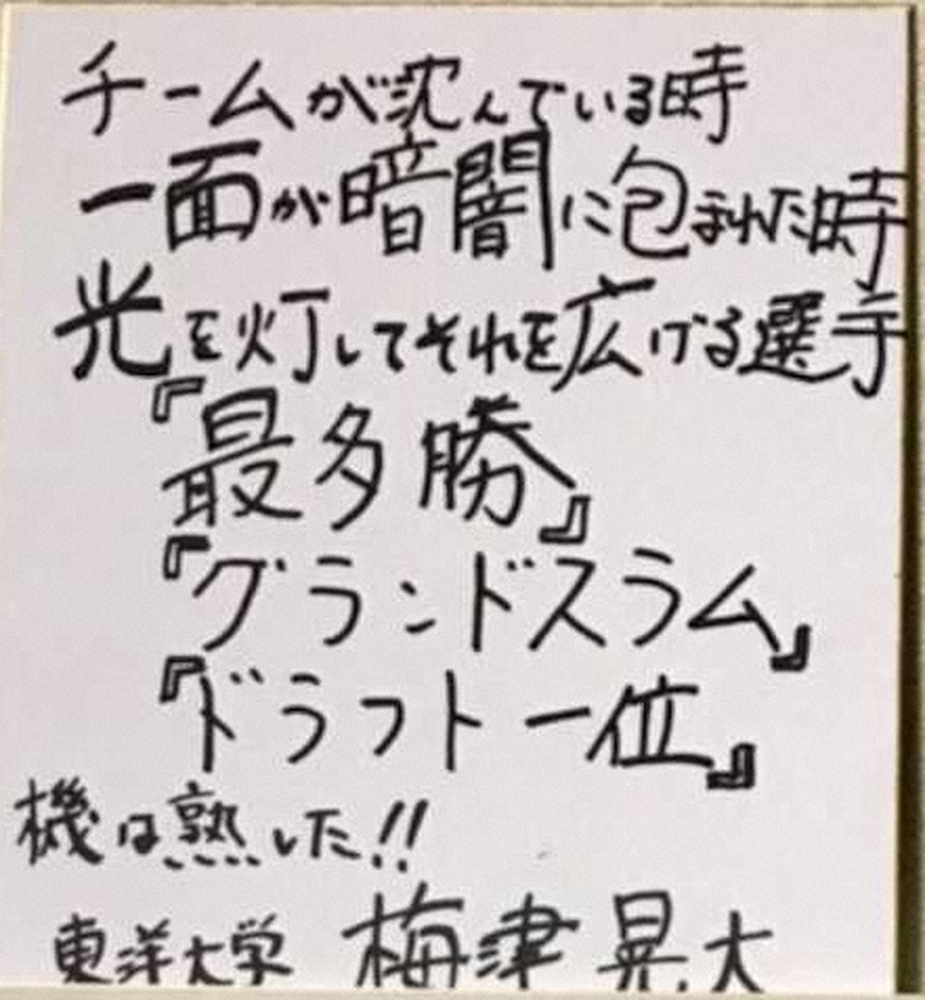 チームが沈んでいる時
一面が暗闇に包まれた時
光を灯してそれを広げる選手
『最多勝』
『グランドスラム』
『ドラフト一位』
機は熟した!!
東洋大学 梅津晃大